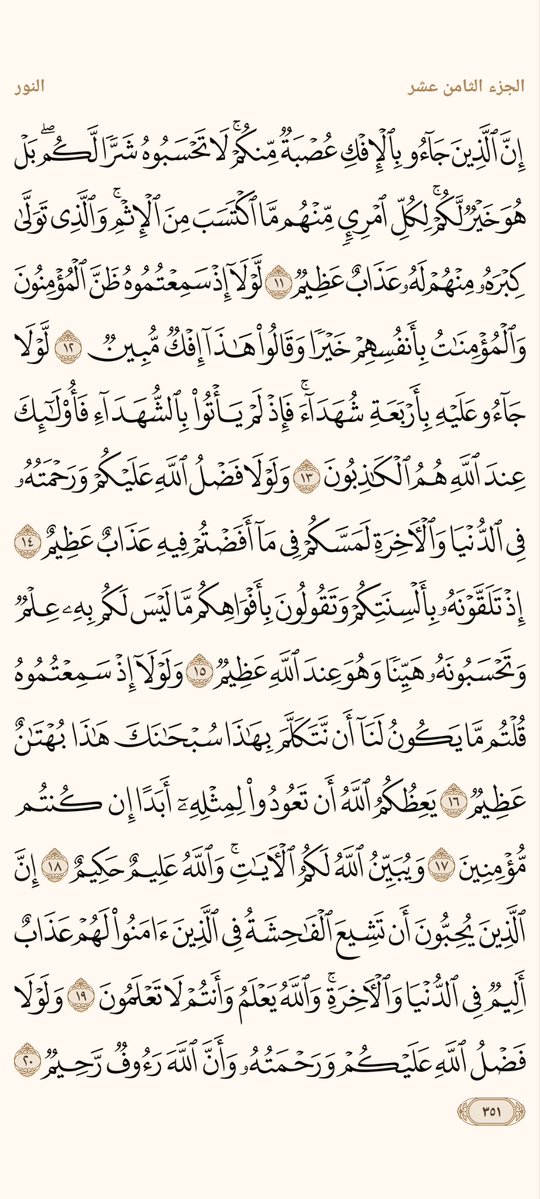 الجزء الثامن عشر النور
إِنَّ ٱلَّذِينَ جَآءُو بِٱلۡإِفۡكِ عُصۡبَةٞ مِّنكُمۡۚ لَا تَحۡسَبُوهُ شَرّٗا لَّكُمۖ بَلۡ
هُوَ خَيۡرٞ لَّكُمۡۚ لِكُلِّ ٱمۡرِيٕٖ مِّنۡهُم مَّا ٱكۡتَسَبَ مِنَ ٱلۡإِثۡمِۚ وَٱلَّذِي تَوَلَّىٰ
كِبۡرَهُۥ مِنۡهُمۡ لَهُۥ عَذَابٌ عَظِيمٞ ١١ لَّوۡلَآ إِذۡ سَمِعۡتُمُوهُ ظَنَّ ٱلۡمُؤۡمِنُونَ
وَٱلۡمُؤۡمِنَٰتُ بِأَنفُسِهِمۡ خَيۡرٗا وَقَالُواْ هَٰذَآ إِفۡكٞ مُّبِينٞ ١٢ لَّوۡلَا
جَآءُو عَلَيۡهِ بِأَرۡبَعَةِ شُهَدَآءَۚ فَإِذۡ لَمۡ يَأۡتُواْ بِٱلشُّهَدَآءِ فَأُوْلَٰٓئِكَ
عِندَ ٱللَّهِ هُمُ ٱلۡكَٰذِبُونَ ١٣ وَلَوۡلَا فَضۡلُ ٱللَّهِ عَلَيۡكُمۡ وَرَحۡمَتُهُۥ
فِي ٱلدُّنۡيَا وَٱلۡأٓخِرَةِ لَمَسَّكُمۡ فِي مَآ أَفَضۡتُمۡ فِيهِ عَذَابٌ عَظِيمٌ ١٤
إِذۡ تَلَقَّوۡنَهُۥ بِأَلۡسِنَتِكُمۡ وَتَقُولُونَ بِأَفۡوَاهِكُم مَّا لَيۡسَ لَكُم بِهِۦ عِلۡمٞ
وَتَحۡسَبُونَهُۥ هَيِّنٗا وَهُوَ عِندَ ٱللَّهِ عَظِيمٞ ١٥ وَلَوۡلَآ إِذۡ سَمِعۡتُمُوهُ
قُلۡتُم مَّا يَكُونُ لَنَآ أَن نَّتَكَلَّمَ بِهَٰذَا سُبۡحَٰنَكَ هَٰذَا بُهۡتَٰنٌ
عَظِيمٞ ١٦ يَعِظُكُمُ ٱللَّهُ أَن تَعُودُواْ لِمِثۡلِهِۦٓ أَبَدًا إِن كُنتُم
مُّؤۡمِنِينَ ١٧ وَيُبَيِّنُ ٱللَّهُ لَكُمُ ٱلۡأٓيَٰتِۚ وَٱللَّهُ عَلِيمٌ حَكِيمٌ ١٨ إِنَّ
ٱلَّذِينَ يُحِبُّونَ أَن تَشِيعَ ٱلۡفَٰحِشَةُ فِي ٱلَّذِينَ ءَامَنُواْ لَهُمۡ عَذَابٌ
أَلِيمٞ فِي ٱلدُّنۡيَا وَٱلۡأٓخِرَةِۚ وَٱللَّهُ يَعۡلَمُ وَأَنتُمۡ لَا تَعۡلَمُونَ ١٩ وَلَوۡلَا
فَضۡلُ ٱللَّهِ عَلَيۡكُمۡ وَرَحۡمَتُهُۥ وَأَنَّ ٱللَّهَ رَءُوفٞ رَّحِيمٞ ٢٠
٣٥١